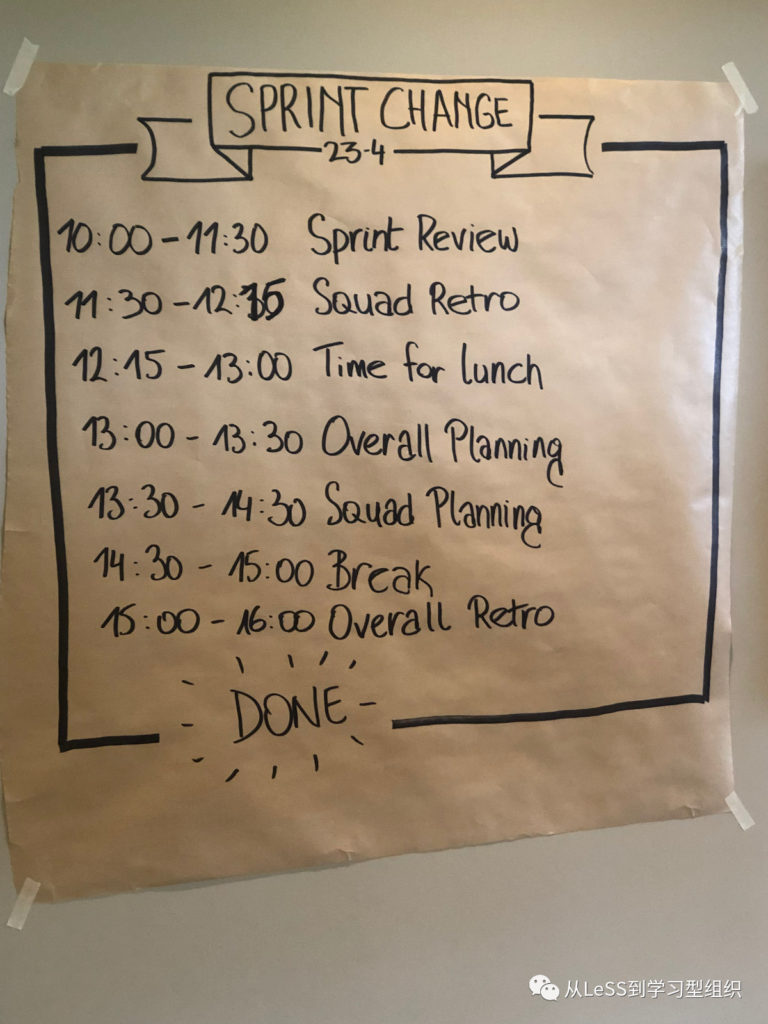 SPRINT CHANGE
23-4
10:00 - 11:30 Sprint Review
11:30 - 12:15 Squad Retro
12:15 - 13:00 Time for lunch
13:00 - 13:30 Overall Planning
13:30 - 14:30 Squad Planning
14:30 - 15:00 Break
15:00 - 16:00 Overall Retro
DONE
从LeSS到学习型组织